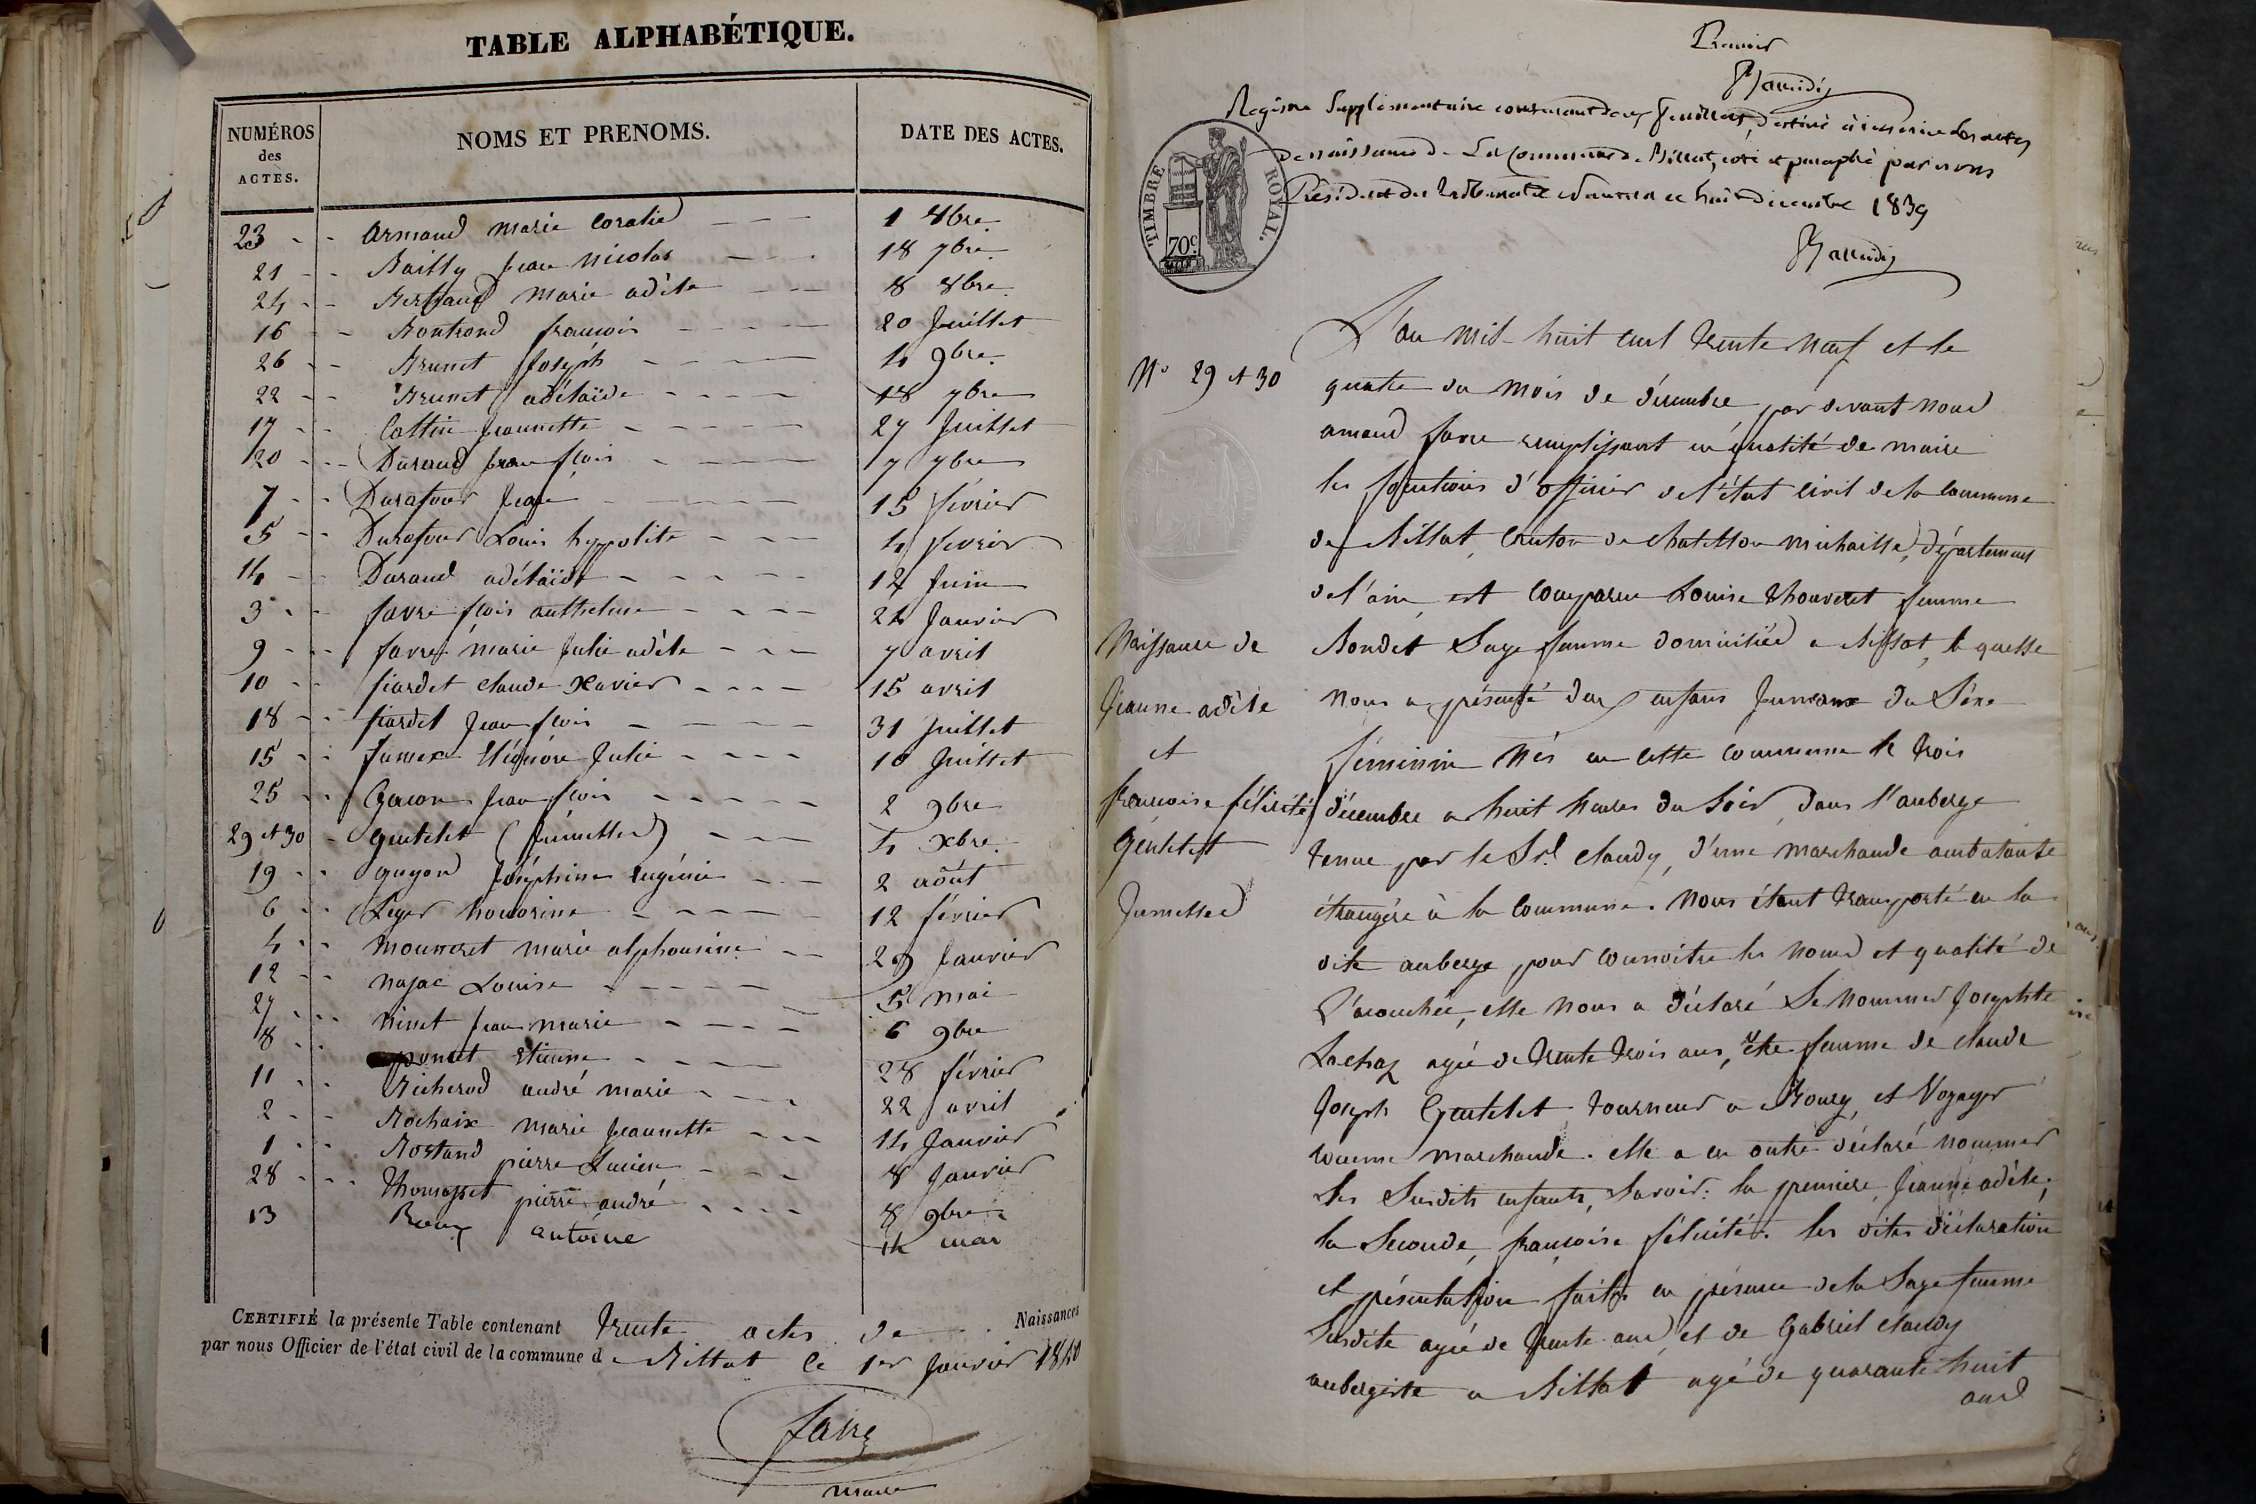 TABLE ALPHABÉTIQUE.
NUMÉROS des ACTES.
NOMS ET PRENOMS.
DATE DES ACTES.
23 armand marie Coralie 1 8bre
21 Bailly jean nicolas 18 7bre
24 Bertrand marie adèle 8 8bre
16 Bontrond francois 20 Juillet
26 Brunet Joseph 4 9bre
22 Brunet adélaïde 18 7bre
17 Cottin Jeannette 27 Juillet
20 Durand jean fcois 7 7bre
7 Durafour Jean 15 février
5 Durafour Louis hyppolite 4 février
14 Durand adélaïde 12 Juin
3 favre fcois anthelme 24 Janvier
9 favre marie Julie adèle 7 avril
10 fiardet claude xavier 15 avril
18 fiardet Jean fcois 31 Juillet
15 fumex Eléonore Julie 10 Juillet
25 Gacon jean fcois 2 9bre
29 et 30 gentelet (Jumelles) 4 xbre
19 guyon Joséphine Eugénie 2 août
6 Leger honorine 12 février
4 mourret marie alphonsine 29 Janvier
12 najac Louise 5 mai
27 ninet jean marie 6 9bre
8 poncet Etienne 28 février
11 Richerod andré marie 22 avril
2 Rochaix marie Jeannette 14 Janvier
1 Rostand pierre Lucien 8 Janvier
28 Thomasset pierre andré 8 9bre
13 Roux antoine 14 mai
CERTIFIÉ la présente Table contenant Trente actes de Naissances
par nous Officier de l'état civil de la commune de Billiat le 1er Janvier 1840
favre
maire
Premier
Registre Supplémentaire contenant deux feuillets, destiné à inscrire les actes
de naissance de La Commune de Billiat, coté et paraphé par nous
Président du Tribunal de Nantua ce huit décembre 1839
TIMBRE ROYAL.
70c
L'an mil huit cent trente neuf et le
N° 29 et 30
quatre du mois de décembre par devant nous
amand favre remplissant en qualité de maire
les fonctions d'officier de l'état civil de la commune
de Billiat, Canton de chatillon michaille, département
de l'ain, est comparue Louise Thouveret femme
Naissance de
Jeanne adèle
et
francoise félicité
Gentelet
Jumelles
Bondet Sage femme domiciliée a Billiat, laquelle
nous a présenté deux enfans Jumeaux du Séxe
féminin Nés en cette commune le trois
décembre a huit heures du Soir, dans l'auberge
tenue par le Sr. claudy, d'une marchande ambulante
étrangére à la commune. Nous étant transporté en la
dite auberge pour connoitre les noms et qualité de
l'acouchée, elle nous a déclaré Se nommer Josephte
Lachaz agée de trente trois ans, être femme de claude
Joseph Gentelet tourneur a Bourg, et Voyager
comme marchande. elle a en outre déclaré nommer
les Susdits enfants, Savoir: la premiere, Jeanne adèle;
la Seconde, francoise félicité. les dites déclaration
et présentation faites en présence de la Sage femme
Susdite agée de trente ans, et de Gabriel claudy
aubergiste a Billiat agé de quarante huit
ans